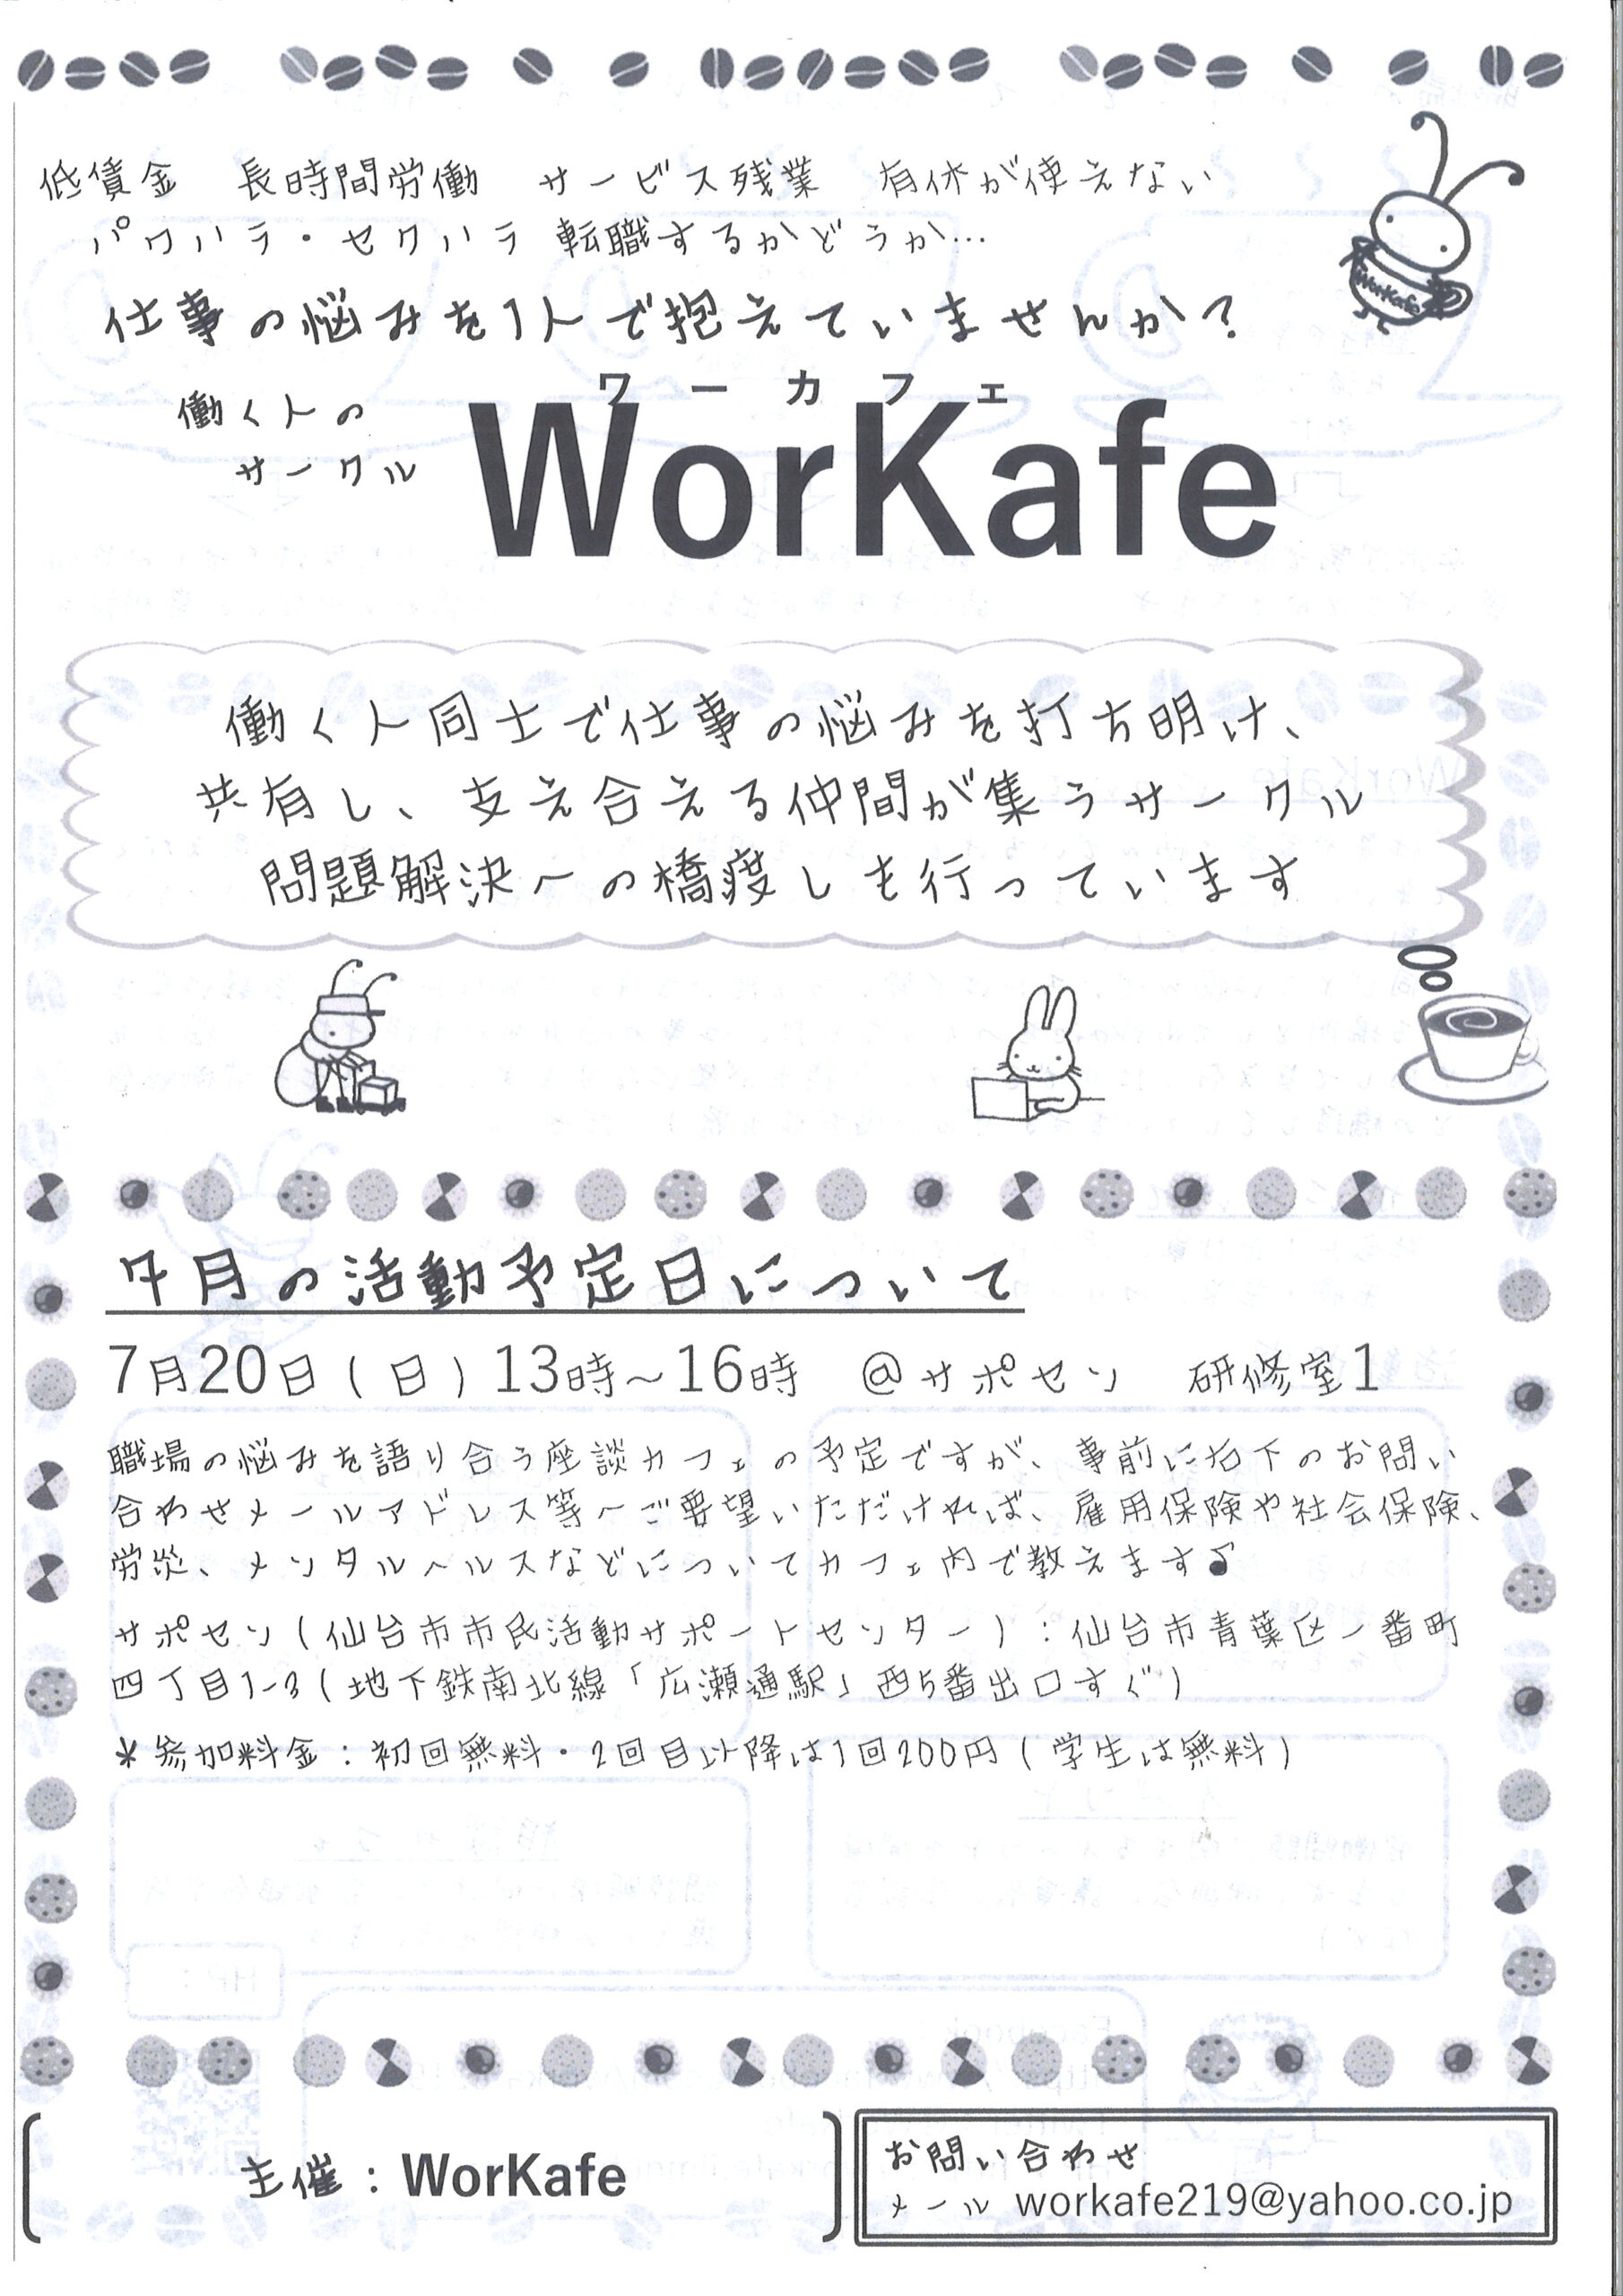 低賃金　長時間労働　サービス残業　有休が使えない
パワハラ・セクハラ 転職するかどうか…
仕事の悩みを1人で抱えていませんか？
WorKafe
働く人の
サークル
ワーカフェ
WorKafe
働く人同士で仕事の悩みを打ち明け、
共有し、支え合える仲間が集うサークル
問題解決への橋渡しも行っています
7月の活動予定日について
7月20日(日)13時～16時　@サポセン　研修室1
職場の悩みを語り合う座談カフェの予定ですが、事前に右下のお問い
合わせメールアドレス等へご要望いただければ、雇用保険や社会保険、
労災、メンタルヘルスなどについてカフェ内で教えます♪
サポセン(仙台市市民活動サポートセンター)：仙台市青葉区一番町
四丁目1-3(地下鉄南北線「広瀬通駅」西5番出口すぐ)
*参加料金：初回無料・2回目以降は1回200円(学生は無料)
主催：WorKafe
お問い合わせ
メール workafe219@yahoo.co.jp